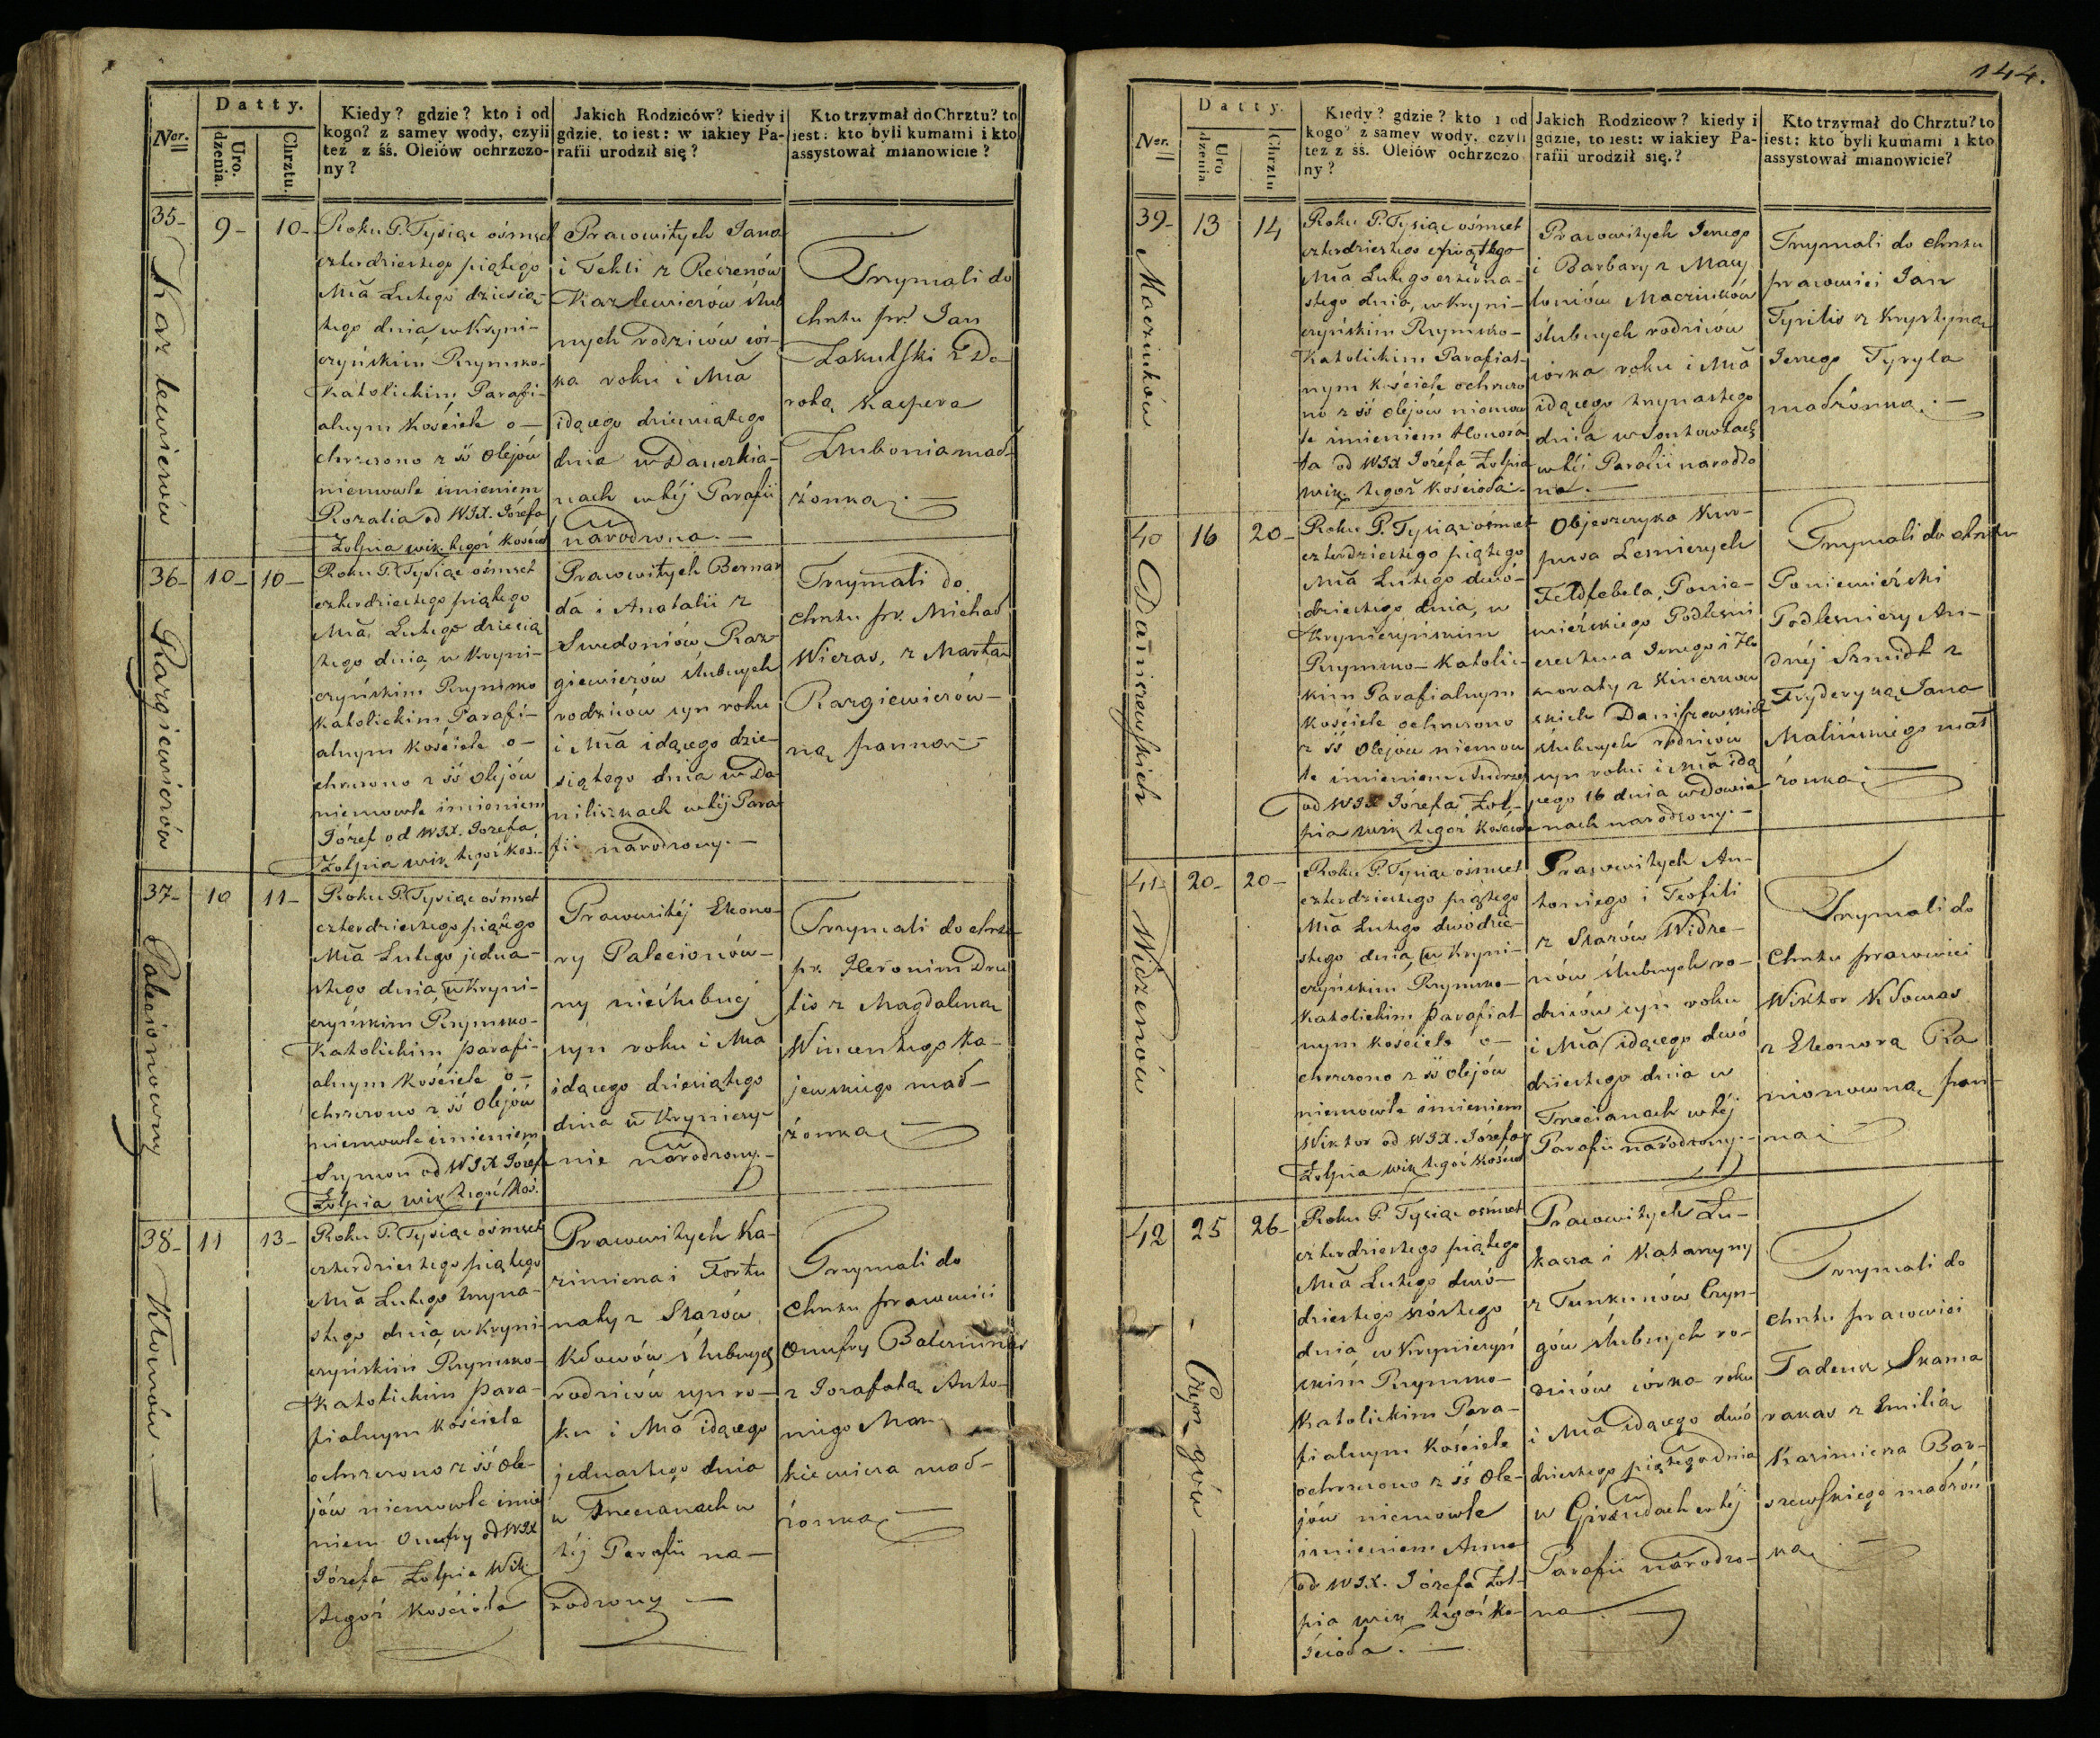 144.
Datty.
Ner.
Uro.
dzenia.
Chrztu.
Kiedy? gdzie? kto i od
kogo? z samey wody, czyli
też z śś. Oleiów ochrzczo-
ny?
Jakich Rodziców? kiedy i
gdzie, to iest: w iakiey Pa-
rafii urodził się?
Kto trzymał do Chrztu? to
iest: kto byli kumami i kto
assystował mianowicie?
35-
9-
10-
Kozlewiczów
Roku P. Tysiąc ośmset
czterdziestego piątego
Mca Lutego dziesią-
tego dnia, w Kryni-
czyńskim Rzymsko-
Katolickim Parafi-
alnym Kościele o-
chrzczono z śś Olejów
niemowle imieniem
Rozalia od WJX. Józefa
Żołpia wik. tegoż Kościoł
Pracowitych Jana
i Tekli z
ślub
nych rodziców cór-
ka roku i Mca
idącego dziewiątego
dnia w Dauczkia-
nach w tej Parafii
narodzona.-
Trzymali do
chrztu pr. Jan
Zakulski z Do-
rotą Kaspra
małż-
żonką.-
36-
10-
10-
Razgiewiczów
Roku P. Tysiąc ośmset
czterdziestego piątego
Mca Lutego dziesią
tego dnia, w Kryni-
czyńskim Rzymsko
Katolickim Parafi-
alnym Kościele o-
chrzczono z śś Olejów
niemowle imieniem
Józef od WJX. Jozefa
Żołpia wik tegoż Koś.-
Pracowitych Bernar
da i Anatalii z
Swedoniów Raz-
giewiczów ślubnych
rodziców syn roku
i Mca idącego dzie-
siątego dnia w Da
niliszkach w tej Para
fii narodzony.-
Trzymali do
chrztu pr. Michał
Wieras, z Martą
Razgiewiczów-
ną panną-
37-
10
11-
Palecionowny
Roku P. Tysiąc ośmset
czterdziestego piątego
Mca Lutego jedna-
stego dnia, w Kryni-
czyńskim Rzymsko-
Katolickim parafi-
alnym Kościele o-
chrzczono z śś Olejów
niemowle imieniem
Szymon od WJX Józefa
Żołpia wik tegoż Koś.
Pracowitéj Eleono-
ry Palecionów-
ny nieślubnej
syn roku i Mca
idącego dziesiątego
dnia w Kryniczy-
nie narodzony.-
Trzymali do chrztu
pr. Heronim Dru
lis z Magdaleną
Wincentego Ka-
jewskiego mał-
żonką-
38-
11
13-
Kłowów.-
Roku P. Tysiąc ośmset
czterdziestego piątego
Mca Lutego trzyna-
stego dnia, w Kryni-
czyńskim Rzymsko-
Katolickim para-
fialnym Kościele
ochrzczono z śś Ole-
jów niemowle imie
niem Onufry od WJX
Józefa Żołpia Wik
tegoż Kościoła
Pracowitych Ka-
zimierza i Fortu
naty z Skarów
Kłowów ślubnych
rodziców syn ro-
ku i Mca idącego
jednastego dnia
w Trzecianach w
tej Parafii na-
rodzony-
Trzymali do
chrztu pracowici
Onufry
z Jozafatą Anto-
niego Mac
kiewicza mał-
żonką
Datty.
Ner.
Uro
dzenia
Chrztu
Kiedy? gdzie? kto i od
kogo? z samey wody, czyli
też z śś. Oleiów ochrzczo
ny?
Jakich Rodziców? kiedy i
gdzie, to iest: w iakiey Pa-
rafii urodził się.?
Kto trzymał do Chrztu? to
iest: kto byli kumami i kto
assystował mianowicie?
39-
13
14
Macziuków
Roku P. Tysiąc ośmset
czterdziestego piątego
Mca Lutego czterna-
stego dnia, w Kryni-
czyńskim Rzymsko-
Katolickim Parafial-
nym Kościele ochrzczo
no z śś Olejów niemow
le imieniem Honora
ta od WJX Józefa Żołpia
wik. tegoż Kościoła-
Pracowitych Jerzego
i Barbary z Macy
toniów Macziuków
ślubnych rodziców
córka roku i Mca
idącego trzynastego
dnia w
w tej Parafii narodzo
na.-
Trzymali do chrztu
pracowici Jan
Tyrilis z Krystyną
Jerzego Tyryla
małżonką.-
40
16
20-
Daniszewskich
Roku P. Tysiąc ośmset
czterdziestego piątego
Mca Lutego dwó-
dziestego dnia, w
Kryniczyńskim
Rzymsko-Katolic-
kim Parafialnym
Kościele ochrzczono
z śś Olejów niemow
le imieniem Andrzej
od WJX Józefa Żoł-
pia wik tegoż Kościoła
Objeszczyka Kor-
pusa Lesniczych
Feldfebela, Ponie-
wieżskiego Podleśni
czestwa Jerzego i Ho
noraty z
skich Daniszewskich
ślubnych rodziców
syn roku i Mca idą
cego 16 dnia w
nach narodzony.-
Trzymali do chrztu
Poniewieżski
Podlesniczy An-
dréj Szmidt z
Fryderyką Jana
Malińskiego mał
żonką
41-
20-
20-
Widzenów
Roku P. Tysiąc ośmset
czterdziestego piątego
Mca Lutego dwódzie-
stego dnia, w Kryni-
czyńskim Rzymsko-
Katolickim Parafial-
nym Kościele o-
chrzczono z śś Olejów
niemowle imieniem
Wiktor od WJX. Józefa
Żołpia wik tegoż Kościoł
Pracowitych An-
toniego i Teofili
z Skarów Widze-
nów ślubnych ro-
dziców syn roku
i Mca idącego dwó
dziestego dnia w
Trzecianach w tej
Parafii narodzony.-
Trzymali do
Chrztu pracowici
Wiktor Kłowas
z Eleonorą Ra
nionowną pan-
ną
42
25
26-
Czyngów
Roku P. Tysiąc ośmset
czterdziestego piątego
Mca Lutego dwó-
dziestego szóstego
dnia, w Kryniczyń
skim Rzymsko-
Katolickim Para-
fialnym Kościele
ochrzczono z śś Ole-
jów niemowle
imieniem Anna
od WJX. Józefa Żoł-
pia wik tegoż Ko-
ścioła.-
Pracowitych Łu-
kasza i Katarzyny
z Tunkunów Czyn-
gów ślubnych ro-
dziców córka roku
i Mca idącego dwó
dziestego piątego dnia
w w tej
Parafii narodzo-
na.
Trzymali do
chrztu pracowici
Tadeusz Skama
rakas z Emilią
Kazimierza Bar-
szewskiego małżon
ką.-